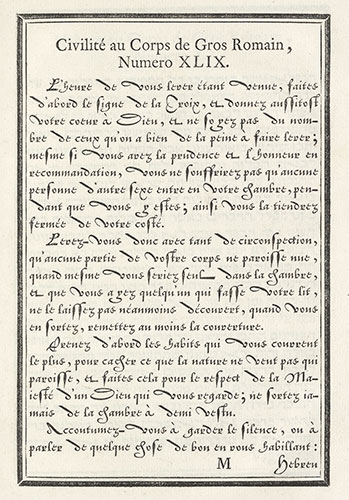 Civilité au Corps de Gros Romain,
Numero XLIX.
L'heure de vous lever étant venue, faites
d'abord le signe de la Croix, et donnez aussitost
votre coeur à Dieu, et ne soyez pas du nom-
bre de ceux qu'on a bien de la peine à faire lever;
mesme si vous avez la prudence et l'honneur en
recommandation, vous ne souffrirez pas qu'aucune
personne d'autre sexe entre en votre chambre, pen-
dant que vous y estes; ainsi vous la tiendrez
fermée de votre costé.
Levez-vous donc avec tant de circonspection,
qu'aucune partie de vostre corps ne paroisse nue,
quand mesme vous seriez seul dans la chambre,
et que vous ayez quelqu'un qui fasse votre lit,
ne le laissez pas néanmoins découvert, quand vous
en sortez, remettez au moins la couverture.
Prenez d'abord les habits qui vous couvrent
le plus, pour cacher ce que la nature ne veut pas qui
paroisse, et faites cela pour le respect de la Ma-
iesté d'un Dieu qui vous regarde; ne sortez ja-
mais de la chambre à demi vestu.
Accoutumez-vous à garder le silence, ou à
parler de quelque chose de bon en vous habillant:
M Hebreu